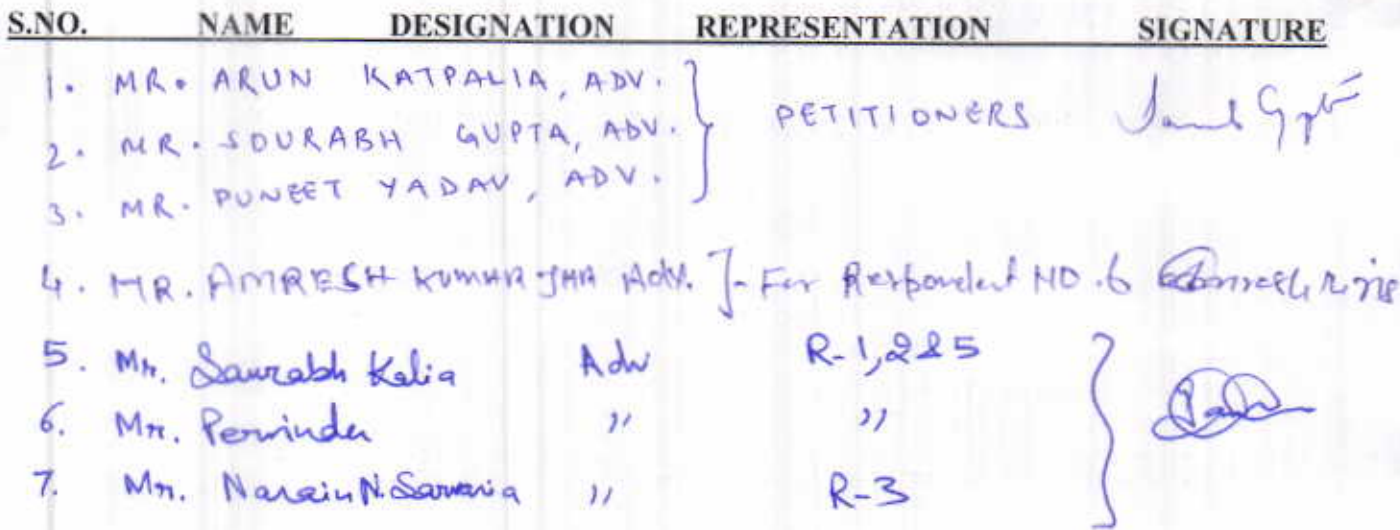 S.NO. NAME DESIGNATION REPRESENTATION SIGNATURE
1. MR. ARUN KATPALIA, ADV.
2. MR. SOURABH GUPTA, ADV. PETITIONERS
3. MR. PUNEET YADAV, ADV.
4. MR. AMRESH KUMAR JHA Adv. - For Respondent NO. 6
5. Mr. Saurabh Kalia Adv R-1,2&5
6. Mr. Perwinder " "
7. Mr. Narain N. Sarvaria " R-3